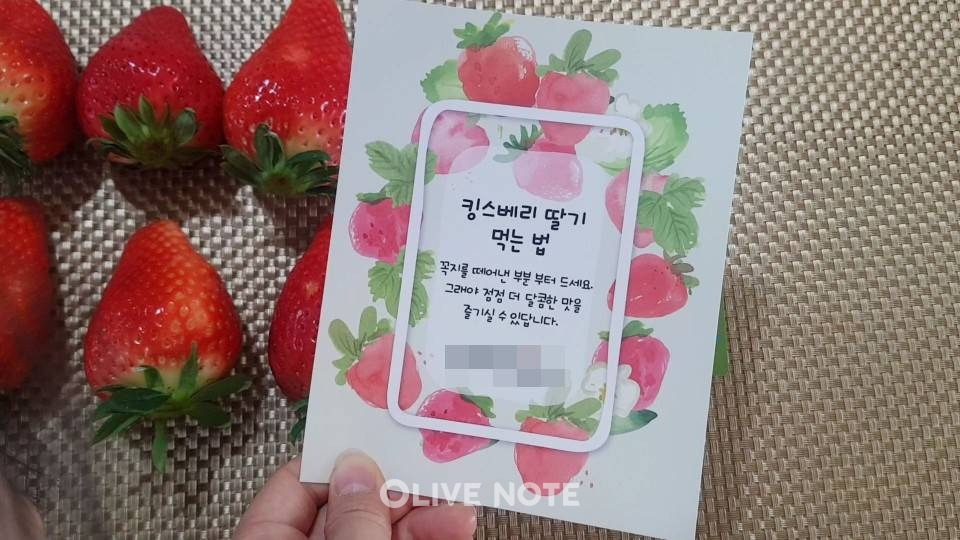 킹스베리 딸기
먹는 법
꼭지를 떼어낸 부분 부터 드세요.
그래야 점점 더 달콤한 맛을
즐기실 수 있답니다.
OLIVE NOTE